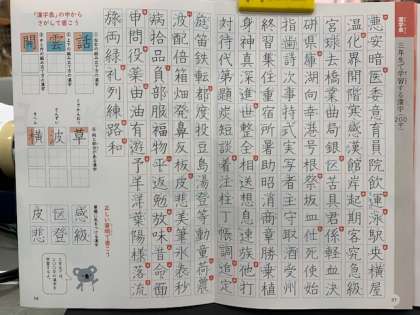 漢字表
三年生で学習する漢字
200字
悪安暗医委意育員院飲運泳駅央横屋
温化界開階寒感漢館岸起期客究急級
宮球去橋業曲局銀区苦具君係軽血決
研県庫湖向幸港号根祭坂皿仕死使始
指歯詩次事持式実写者主守取酒受州
終習集住重宿所暑助昭消商章勝乗植
身神真深進世整昔全相送想息速族他打
対待代第題炭短談着注柱丁帳調追定
庭笛鉄転都度投豆島湯登等動童荷農
波配倍箱畑発鼻反板皮悲美筆氷表秒
病拾品負部服福物平返勉放味命面
申問役薬由油有遊予羊洋葉陽様落流
旅両緑礼列練路和
「漢字表」の中から
さがして書こう
話
雲
草
波
横
正しい筆順で書こう
感級
区登
皮悲